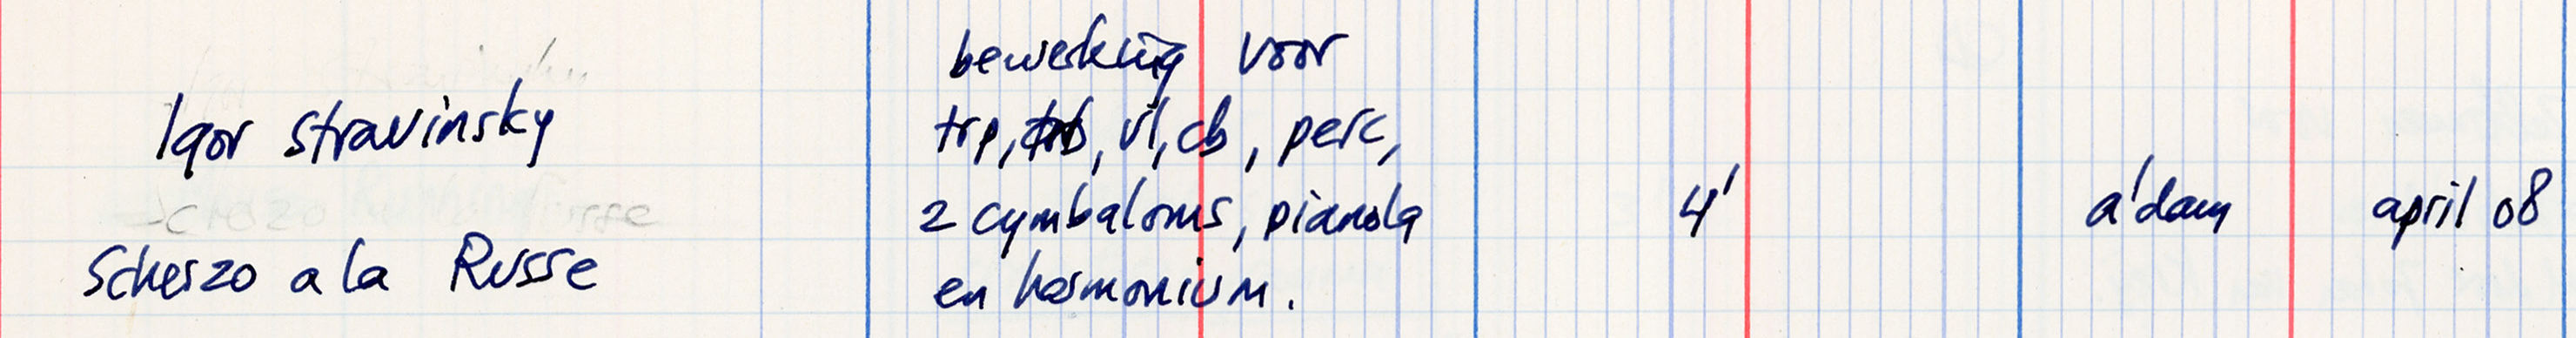 Igor Stravinsky
Scherzo a la Russe
bewerking voor
trp, trb, vl, cb, perc,
2 cymbaloms, pianola
en harmonium.
4'
a'dam
april 08